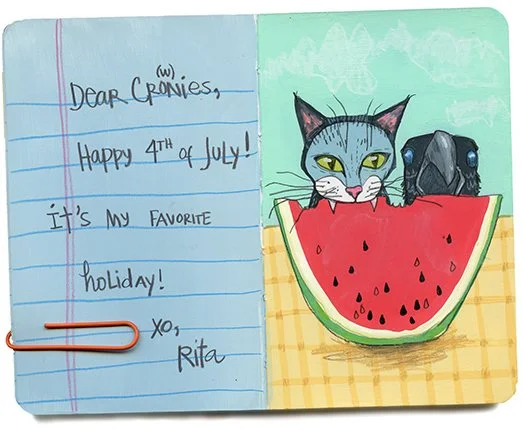 Dear Cro(w)nies,
Happy 4th of July!
it's my favorite
holiday!
xo,
Rita